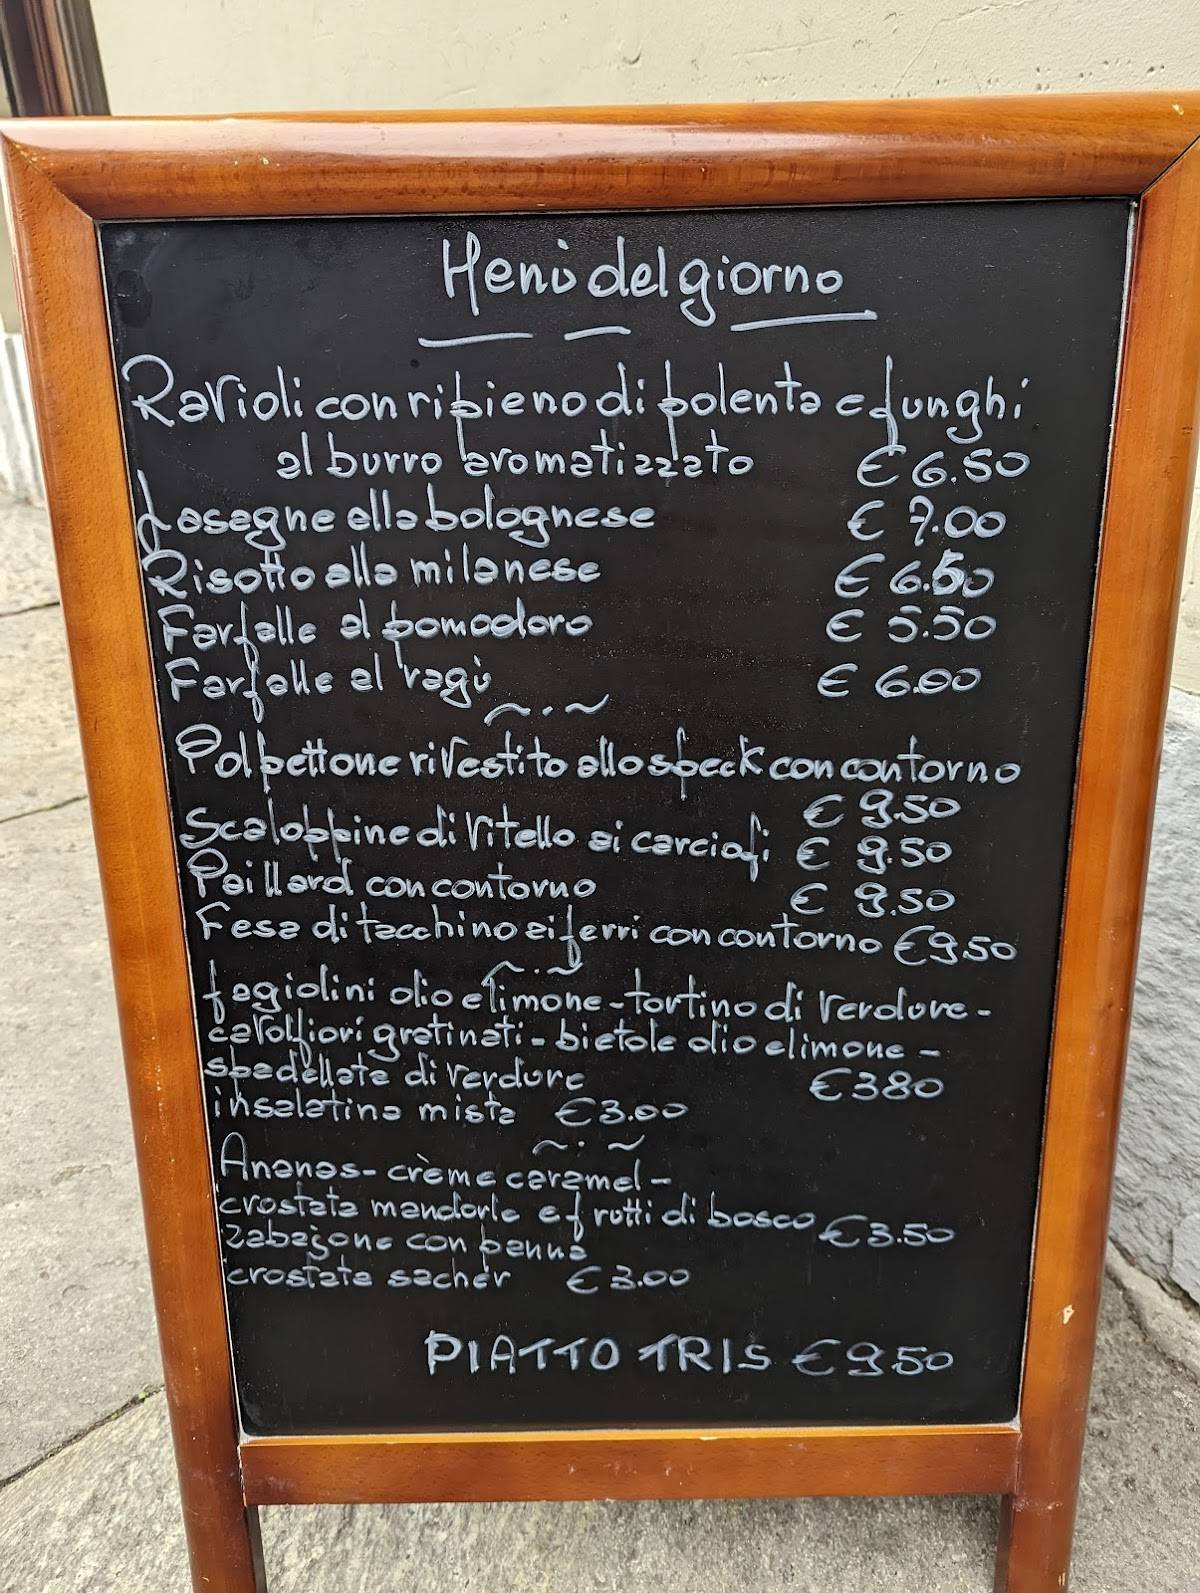 Menù del giorno
Ravioli con ripieno di polenta e funghi
al burro aromatizzato € 6.50
Lasagne alla bolognese € 7.00
Risotto alla milanese € 6.50
Farfalle al pomodoro € 5.50
Farfalle al ragù € 6.00
Polpettone rivestito allo speck con contorno
€ 9.50
Scaloppine di vitello ai carciofi € 9.50
Paillard con contorno € 9.50
Fesa di tacchino ai ferri con contorno € 9.50
fagiolini olio e limone - tortino di verdure -
cavolfiori gratinati - bietole olio e limone -
spadellata di verdure € 380
insalatina mista € 3.00
Ananas - crème caramel -
crostata mandorle e frutti di bosco € 3.50
zabajone con panna
crostata sacher € 3.00
PIATTO TRIS € 9.50